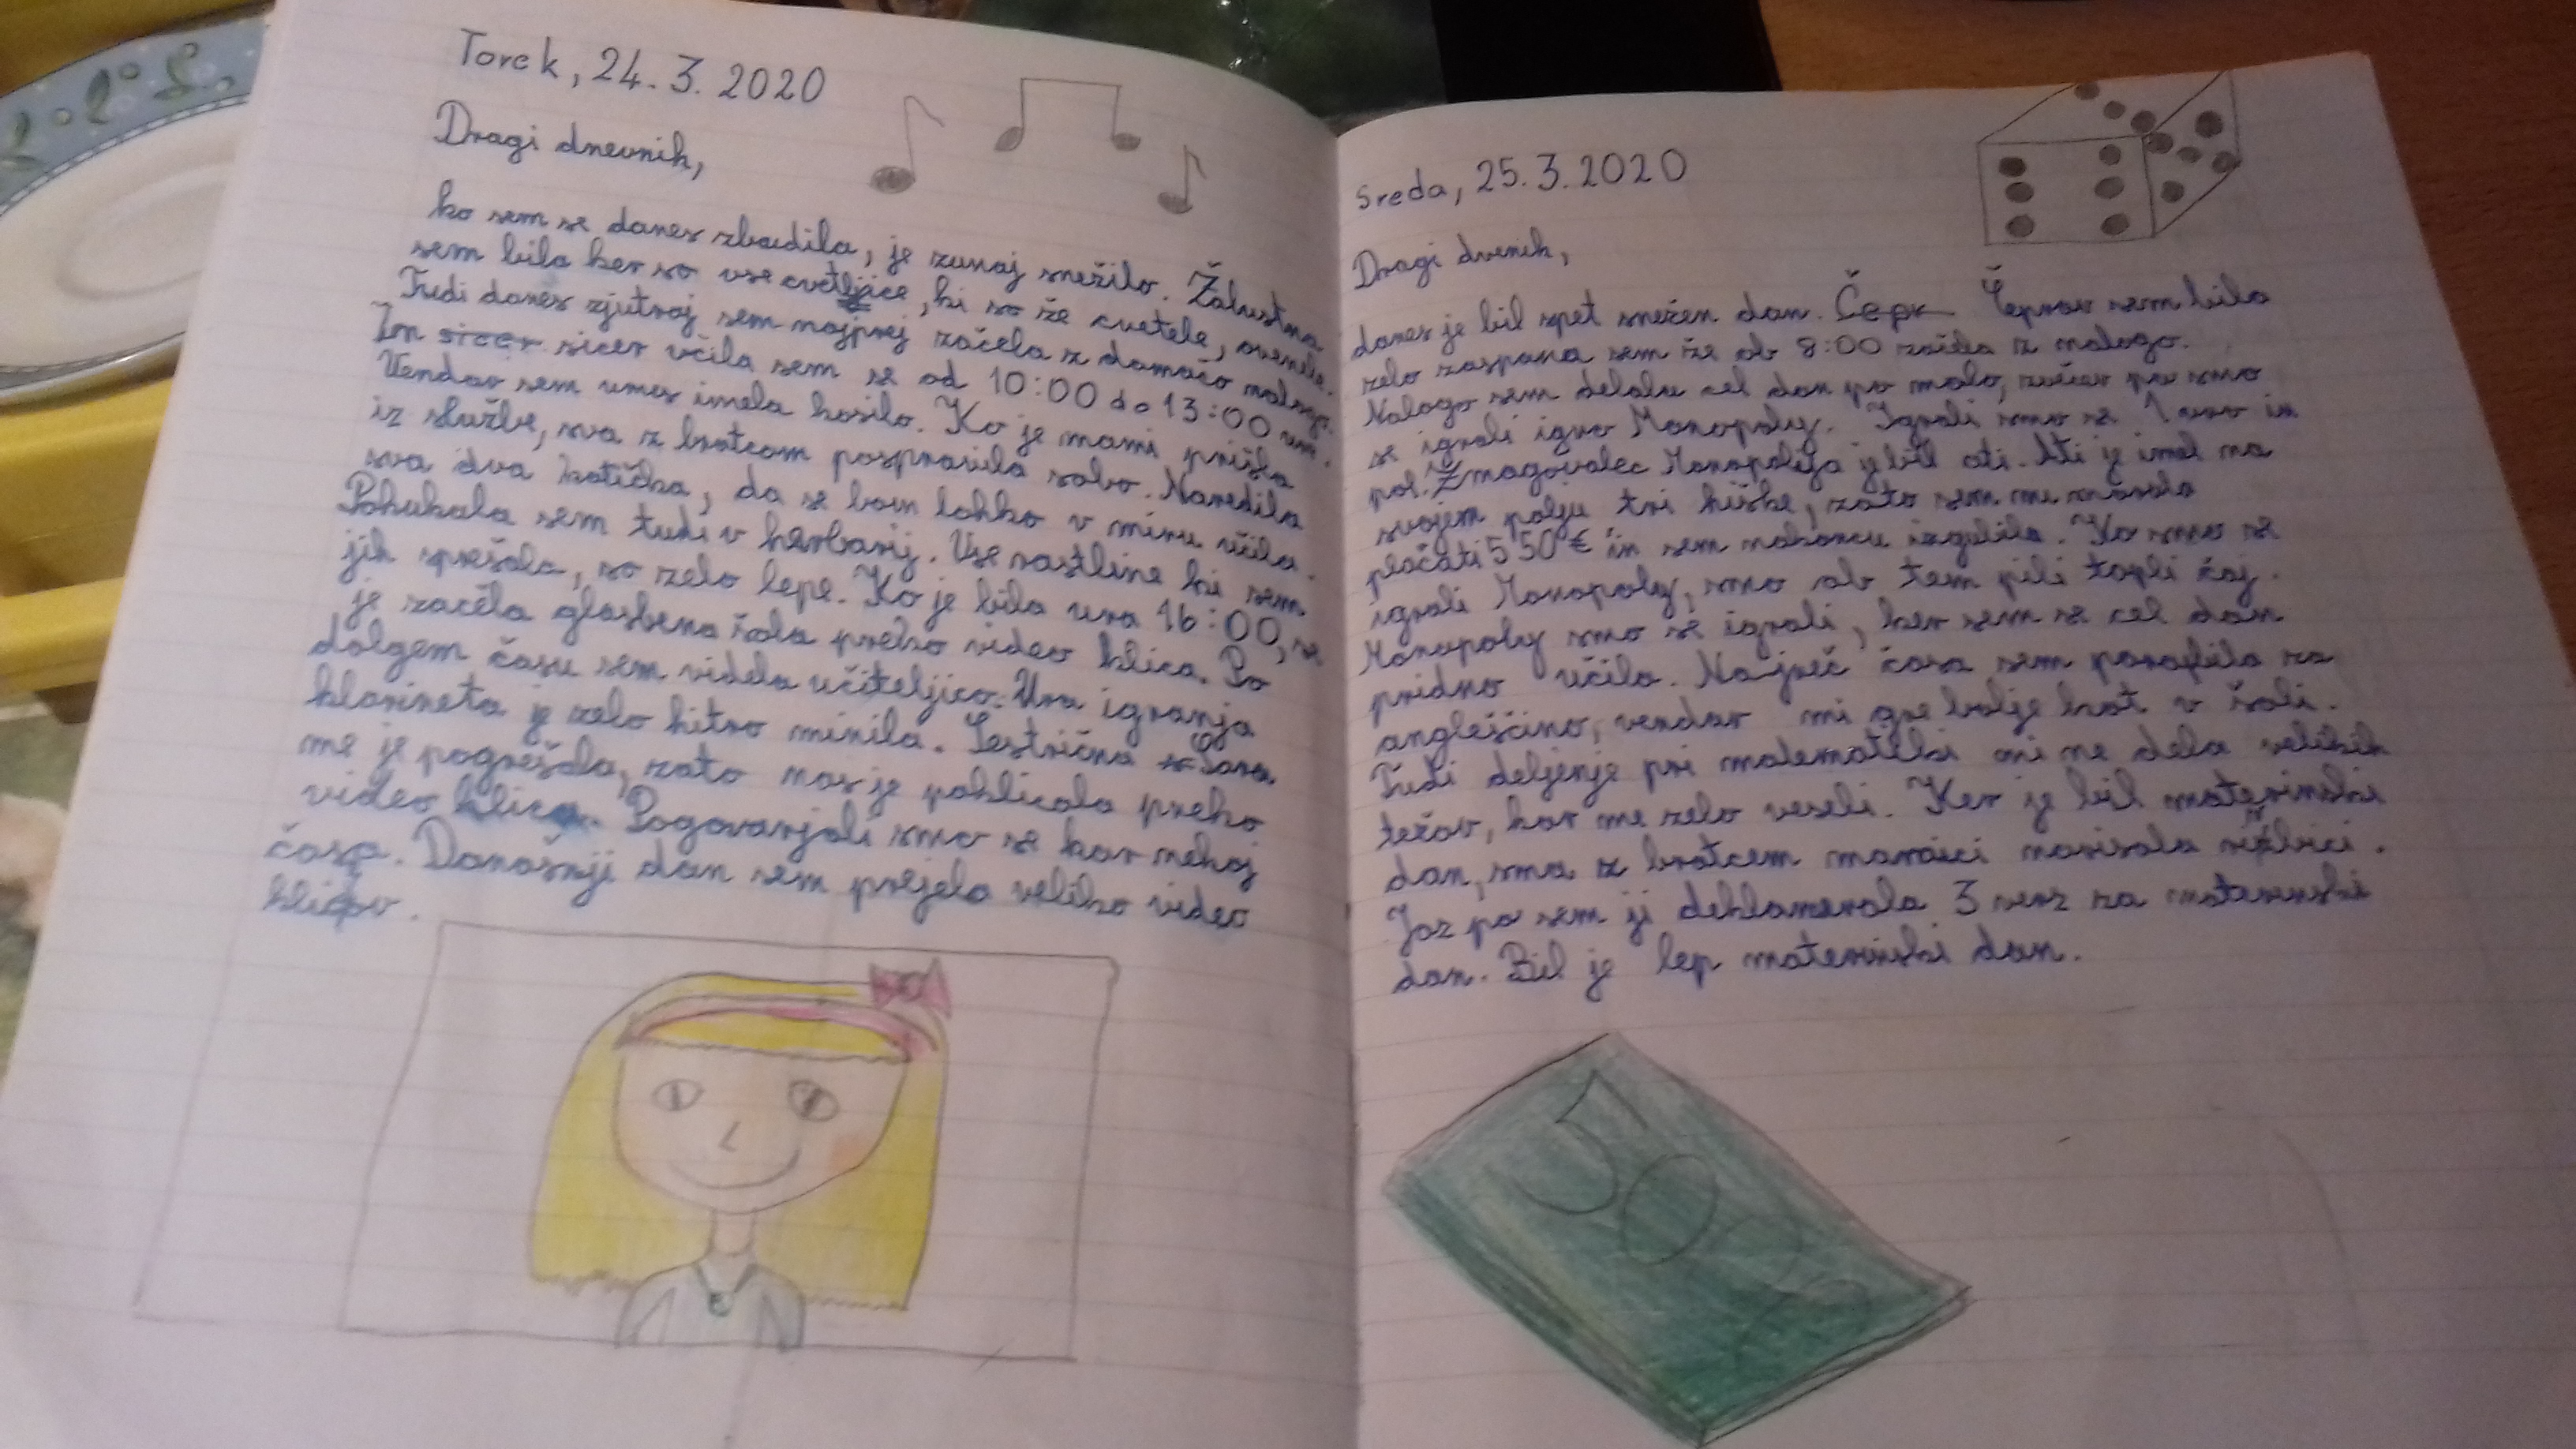 Torek, 24. 3. 2020
Dragi dnevnik,
ko sem se danes zbudila, je zunaj snežilo. Žalostna
sem bila ker so vse cvetljice, ki so že cvetele, ovenele.
Tudi danes zjutraj sem najprej začela z domačo nalogo.
In sicer sicer včila sem se od 10:00 do 13:00 ure.
Vendar sem vmes imela kosilo. Ko je mami prišla
iz službe, sva z bratcom pospravila sobo. Naredila
sva dva kotička, da se bom lahko v miru učila.
Pokukala sem tudi v herbarij. Vse rastline ki sem
jih sprešala, so zelo lepe. Ko je bila ura 16:00, se
je začela glasbena šola preko video klica. Po
dolgem času sem videla učiteljico. Ura igranja
klarineta je zelo hitro minila. Sestrična Sara
me je pogrešala, zato nas je poklicala preko
video klica. Pogovarjali smo se kar nekaj
časa. Današnji dan sem prejela veliko video
klicov.
Sreda, 25.3.2020
Dragi dvenik,
danes je bil spet snežen dan. Čepr Čeprav sem bila
zelo zaspana sem že ob 8:00 začela z nalogo.
Nalogo sem delala cel dan po malo, zvečer pa smo
se igrali igro Monopoly. Igrali smo se 1 uro in
pol. Zmagovalec Monopolija je bil ati. Ati je imel na
svojem polju tri hiške, zato sem mu morala
plačati 550 € in sem nakoncu izgubila. Ko smo se
igrali Monopoly, smo ob tem pili topli čaj.
Monopoly smo se igrali, ker sem se cel dan
pridno učila. Največ časa sem porabila za
angleščino, vendar mi gre bolje kot v šoli.
Tudi deljenje pri matematiki mi ne dela velikih
težav, kar me zelo veseli. Ker je bil materinski
dan, sma z bratcem mamici narisala risbici.
Jaz pa sem ji deklamerala 3 verz za materinski
dan. Bil je lep materinski dan.
5000